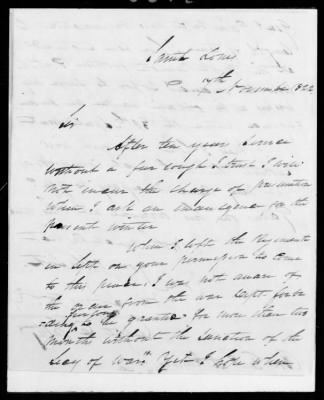 Saint Louis
17th November 1822
Sir
After ten years service
without a furlough I trust I will
not incur the charge of presumption
when I ask an indulgence for the
present winter
When I left the Regiment
in Sett on your permission to come
to this place. I was not aware of
the order from the war Dept forbi
-ding furloughs to be granted for more than two
months without the sanction of the
Secy of War. Yet I hope when